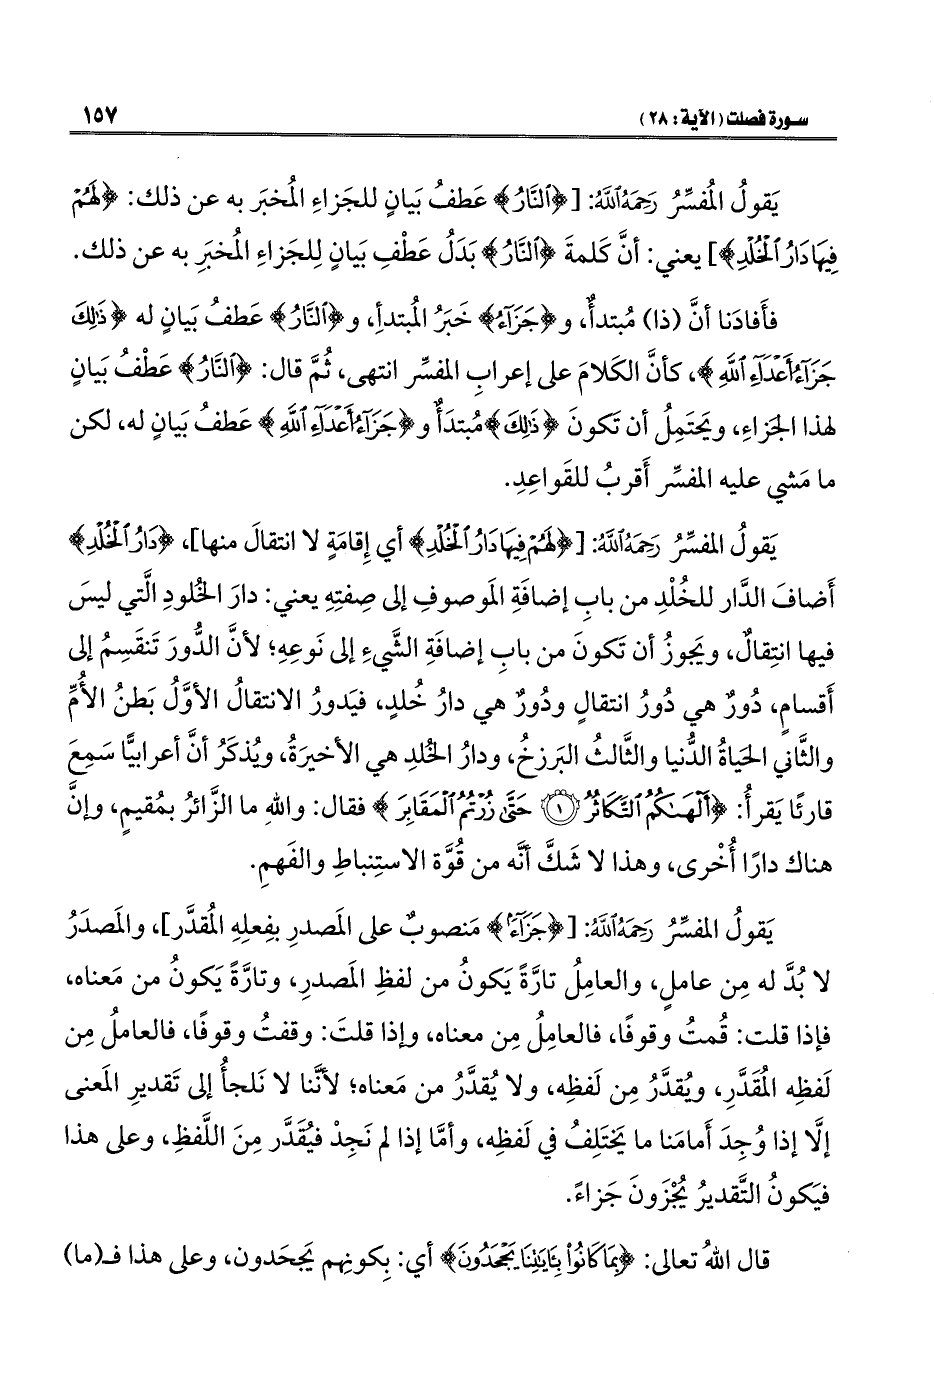 سورة فصلت (الآية: ٢٨)
١٥٧
يَقولُ المُفسِّرُ رَحِمَهُ ٱللَّهُ: [﴿ٱلنَّارُ﴾ عَطفُ بَيانٍ للجَزاءِ المُخبَرِ به عن ذلك: ﴿لَهُمْ
فِيهَا دَارُ ٱلْخُلْدِ﴾] يعني: أنَّ كَلمةَ ﴿ٱلنَّارُ﴾ بَدَلُ عَطْفِ بيَانٍ لِلجَزاءِ المُخبَرِ به عن ذلك.
فأَفادَنا أنَّ (ذا) مُبتدأٌ، و﴿جَزَآءُ﴾ خَبَرُ المُبتدأِ، و﴿ٱلنَّارُ﴾ عَطفُ بَيانٍ له ﴿ذَٰلِكَ
جَزَآءُ أَعْدَآءِ ٱللَّهِ﴾، كأنَّ الكَلامَ على إعرابِ المفسِّر انتهى، ثُمَّ قال: ﴿ٱلنَّارُ﴾ عَطْفُ بيَانٍ
لهذا الجَزاءِ، ويَحتَمِلُ أن تَكونَ ﴿ذَٰلِكَ﴾ مُبتدَأٌ و﴿جَزَآءُ أَعْدَآءِ ٱللَّهِ﴾ عَطفُ بيَانٍ له، لكن
ما مَشي عليه المفسِّر أَقربُ للقَواعِدِ.
يَقولُ المفسِّرُ رَحِمَهُ ٱللَّهُ: [﴿لَهُمْ فِيهَا دَارُ ٱلْخُلْدِ﴾ أي إِقامَةٍ لا انتقالَ منها]، ﴿دَارُ ٱلْخُلْدِ﴾
أَضافَ الدَّار للخُلْدِ من بابِ إضافَةِ المَوصوفِ إلى صِفتِهِ يعني: دارَ الخُلودِ الَّتي ليسَ
فيها انتِقالٌ، ويَجوزُ أن تَكونَ من بابِ إضافَةِ الشَّيءِ إلى نَوعِهِ؛ لأنَّ الدُّورَ تَنقَسِمُ إلى
أَقسامٍ، دُورٌ هي دُورُ انتقالٍ ودُورٌ هي دارُ خُلدٍ، فيَدورُ الانتقالُ الأوَّلُ بَطنُ الأُمِّ
والثَّاني الحَياةُ الدُّنيا والثَّالثُ البَرزخُ، ودارُ الخُلدِ هي الأَخيرَةُ، ويُذكَرُ أنَّ أعرابيًّا سَمِعَ
قارئًا يَقرأُ: ﴿أَلْهَىٰكُمُ ٱلتَّكَاثُرُ ۝١ حَتَّىٰ زُرْتُمُ ٱلْمَقَابِرَ﴾ فقال: واللهِ ما الزَّائرُ بمُقيمٍ، وإنَّ
هناك دارًا أُخْرى، وهذا لا شَكَّ أنَّه من قُوَّة الاستِنباطِ والفَهمِ.
يَقولُ المفسِّرُ رَحِمَهُ ٱللَّهُ: [﴿جَزَآءً﴾ مَنصوبٌ على المَصدرِ بفِعلِهِ المُقدَّر]، والمَصدَرُ
لا بُدَّ له مِن عاملٍ، والعامِلُ تارَّةً يَكونُ من لفظِ المَصدرِ، وتارَّةً يَكونُ من مَعناه،
فإذا قلت: قُمتُ وقوفًا، فالعامِلُ مِن معناه، وإذا قلتَ: وقفتُ وقوفًا، فالعاملُ مِن
لَفظِه المُقَدَّرِ، ويُقدَّرُ مِن لَفظِه، ولا يُقدَّرُ من مَعناه؛ لأنَّنا لا نَلجأُ إلى تَقديرِ المَعنى
إلَّا إذا وُجِدَ أمامَنا ما يَختَلِفُ في لَفظِه، وأمَّا إذا لم نَجِدْ فيُقَدَّر مِنَ اللَّفظِ، وعلى هذا
فيَكونُ التَّقديرُ يُجْزَونَ جَزاءً.
قال اللهُ تعالى: ﴿بِمَا كَانُوا۟ بِـَٔايَٰتِنَا يَجْحَدُونَ﴾ أي: بِكونِهم يَجحَدون، وعلى هذا فـ(ما)